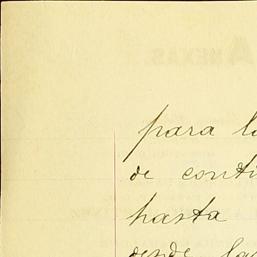 ANEXAS.
para l
de conti
hasta
desde la